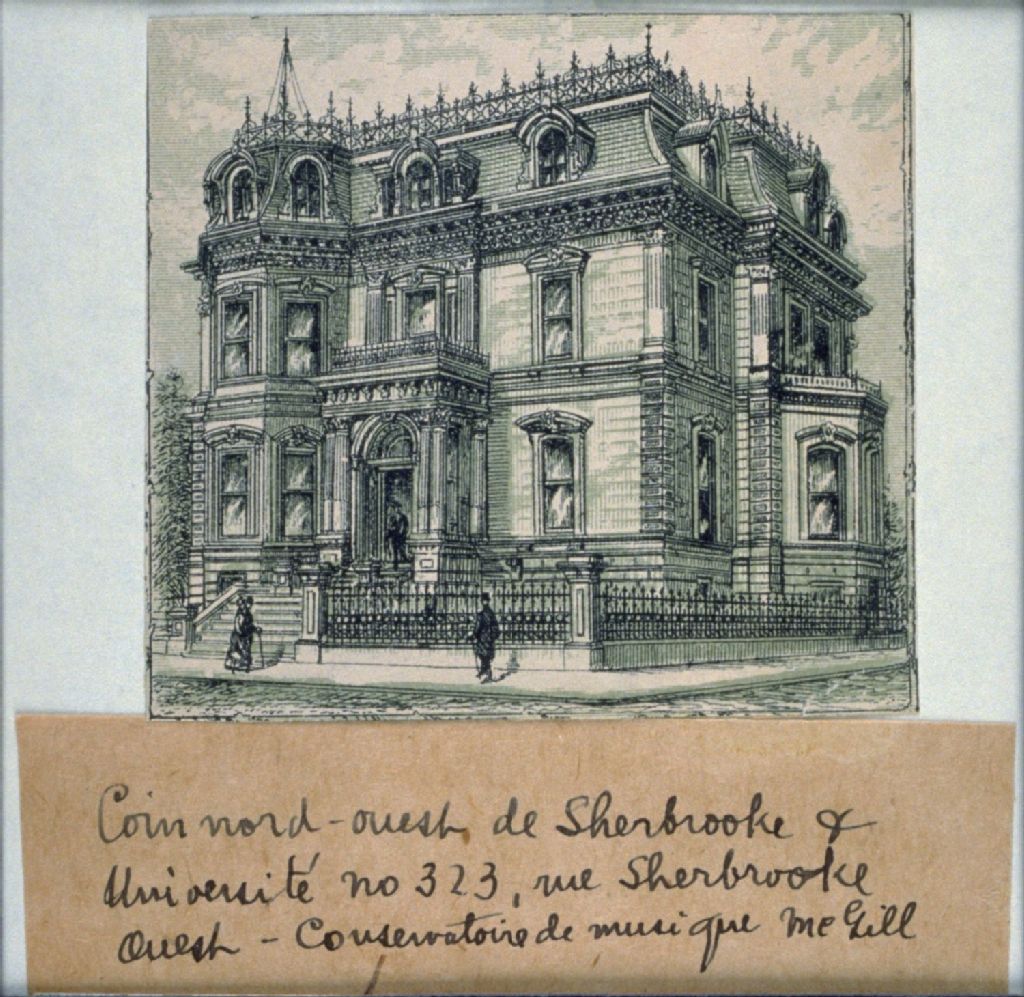 Coin nord-ouest de Sherbrooke &
Université no 323, rue Sherbrooke
Ouest - Conservatoire de musique McGill